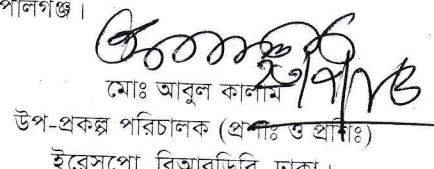 পালগঞ্জ।
মোঃ আবুল কালাম
উপ-প্রকল্প পরিচালক (প্রশাঃ ও প্রশিঃ)
ইরেসপো বিআরডিবি ঢাকা।